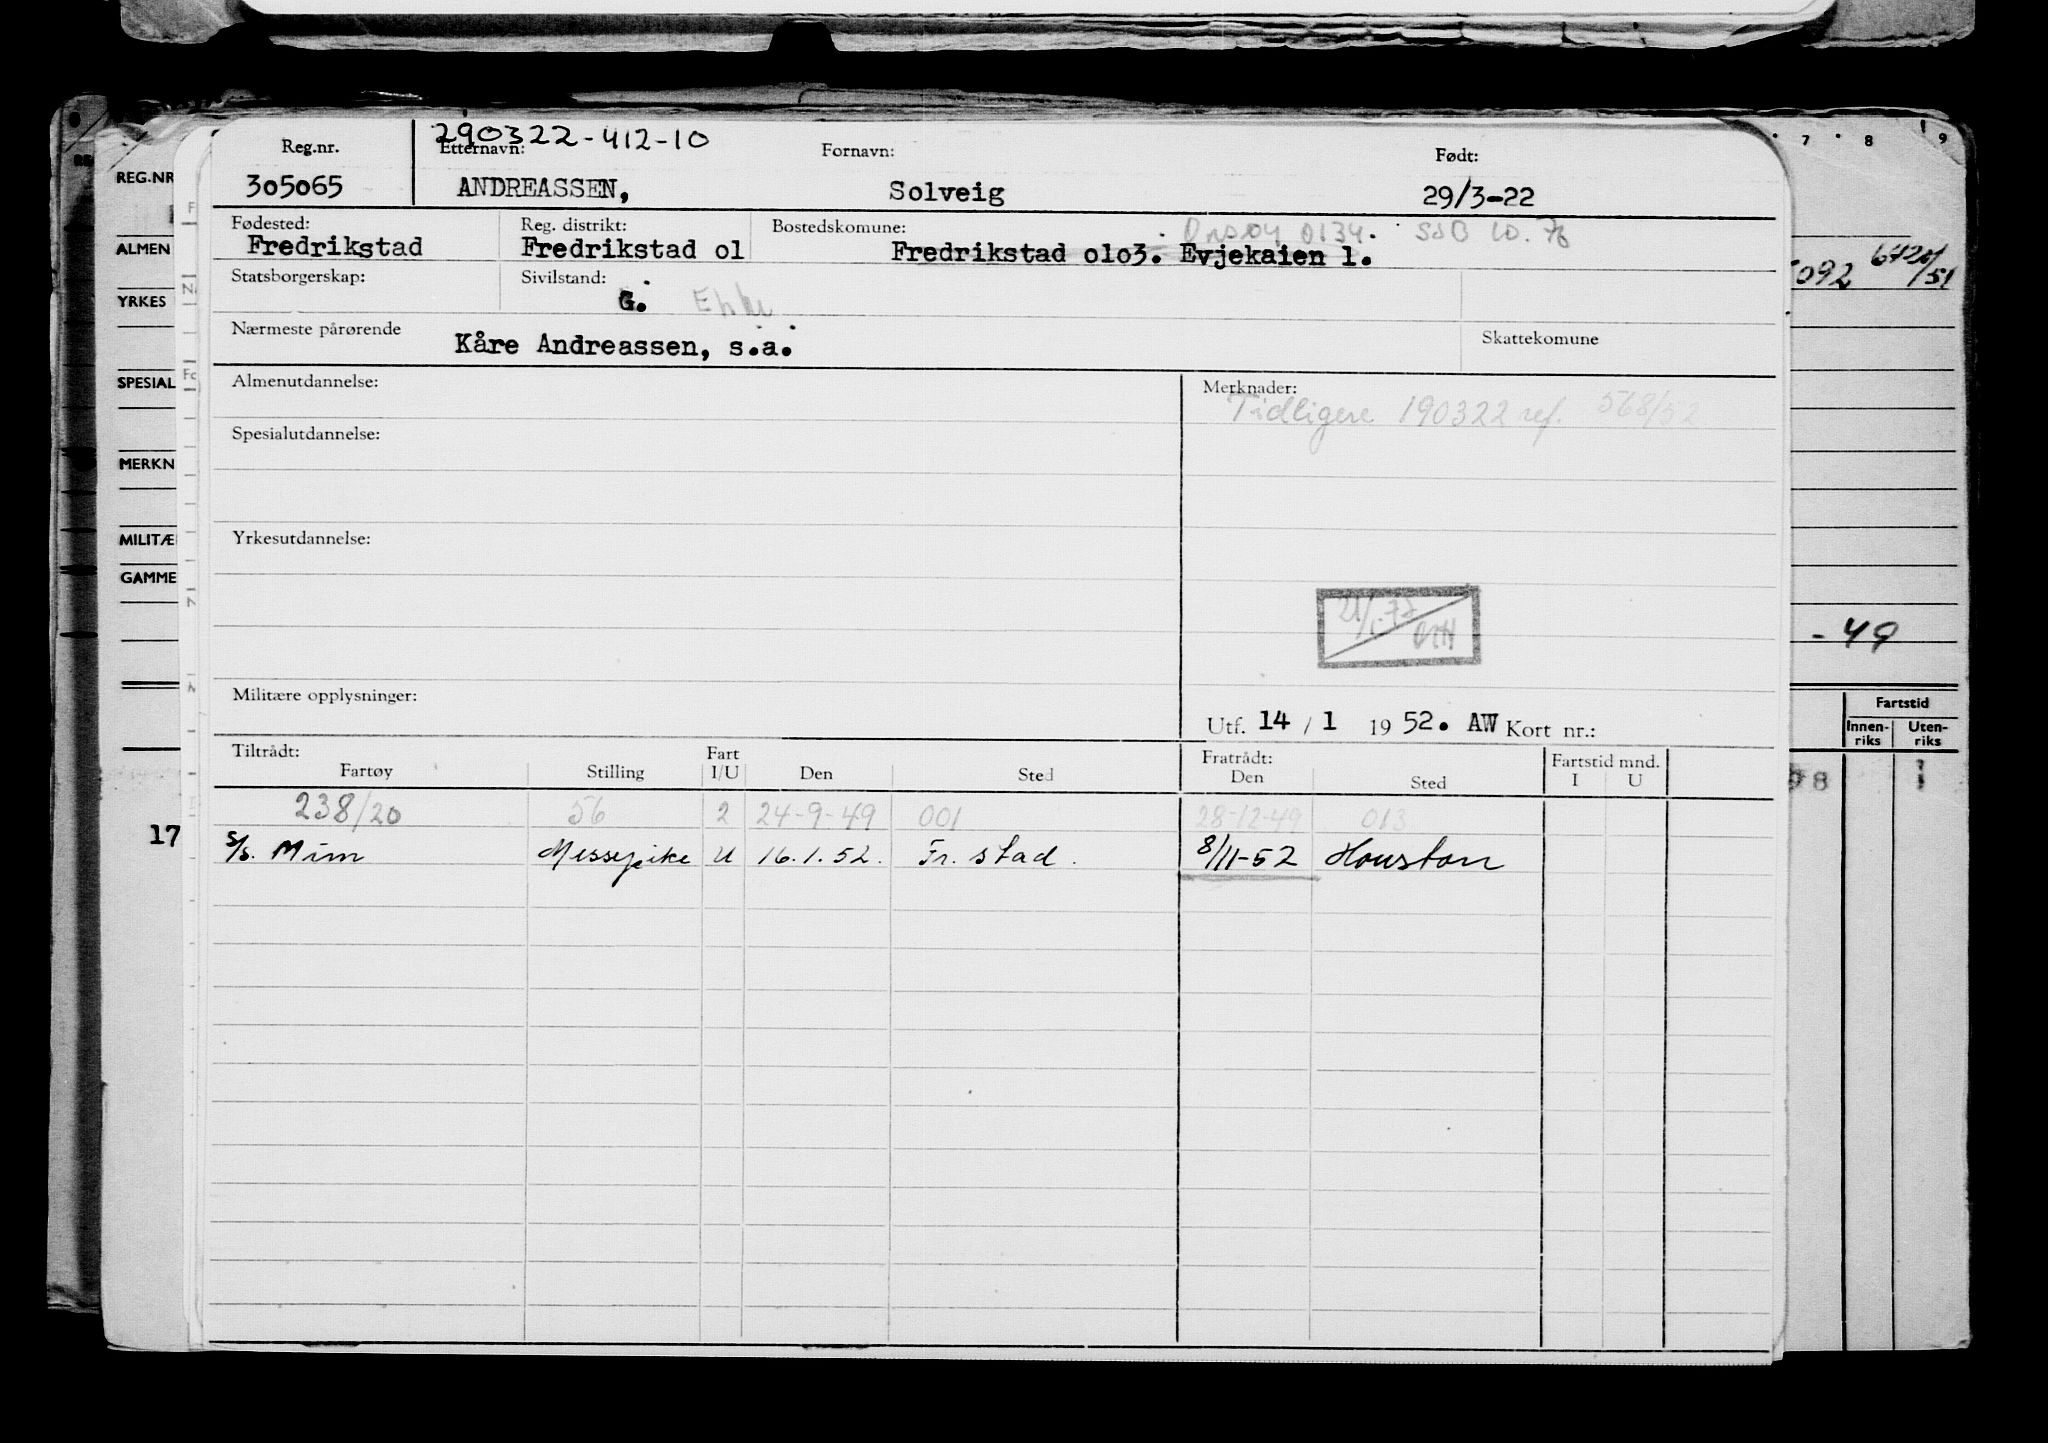 7 8 9
290322-412-10
Reg.nr. Etternavn: Fornavn: Født:
305065 ANDREASSEN, Solveig 29/3-22
REG.NR
Fødested: Reg. distrikt: Bostedskomune: Onsøy 0134. SSB 10.76
Fredrikstad Fredrikstad 01 Fredrikstad 0103. Evjekaien 1.
ALMEN
092 642 /51
Statsborgerskap: Sivilstand:
G.
YRKES
Nærmeste pårørende Skattekomune
Kåre Andreassen, s.a.
SPESIAL
Almenutdannelse: Merknader:
Tidligere 190322 ref. 568/52
Spesialutdannelse:
MERKN
Yrkesutdannelse:
MILITÆ
GAMME
21/1-77
- 49
Militære opplysninger:
Utf. 14 / 1 1952. AW Kort nr.:
Fartstid
Innen-riks Uten-riks
Tiltrådt: Fart Fratrådt: Fartstid mnd.
Fartøy Stilling I/U Den Sted Den Sted I U
8 1
238/20 56 2 24-9-49 001 28-12-49 013
17
S/s. Mim Messepike U 16.1.52. Fr.stad. 8/11-52 Houston